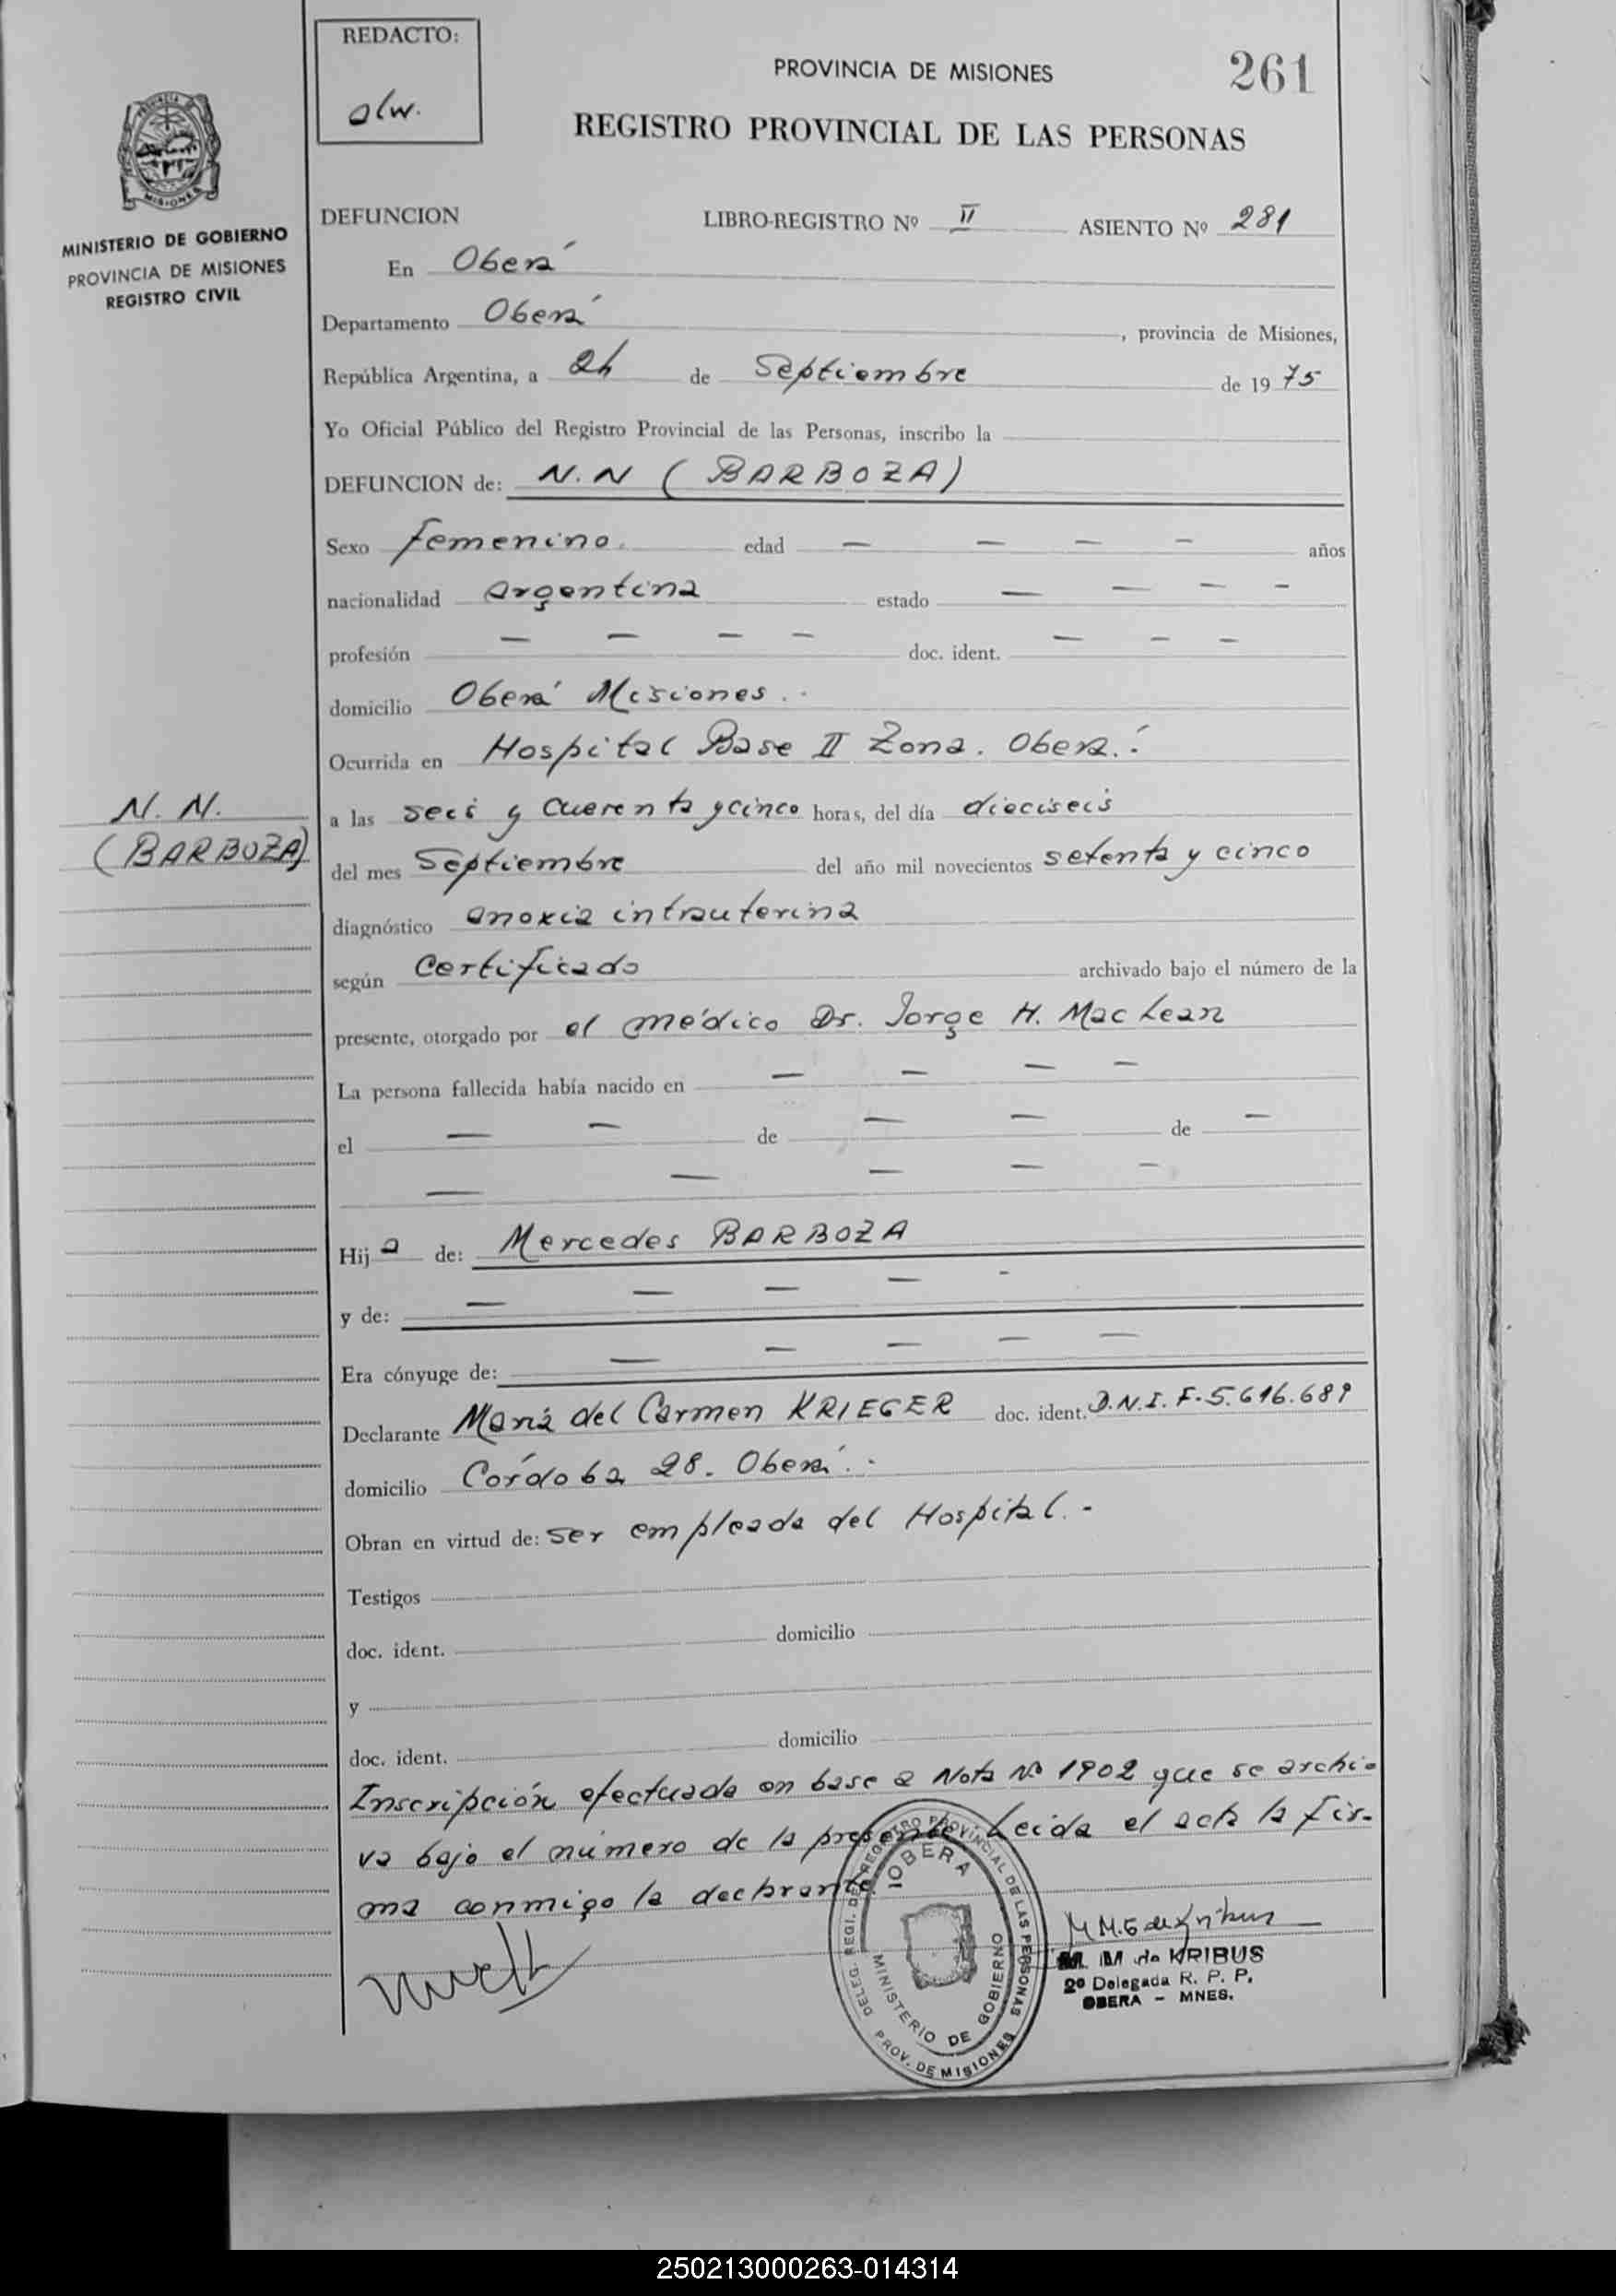 REDACTO:
olw.
PROVINCIA DE MISIONES
261
REGISTRO PROVINCIAL DE LAS PERSONAS
MISIONES
MINISTERIO DE GOBIERNO
PROVINCIA DE MISIONES
REGISTRO CIVIL
DEFUNCION LIBRO-REGISTRO Nº II ASIENTO Nº 281
En Oberá
Departamento Oberá, provincia de Misiones,
República Argentina, a 24 de Septiembre de 1975
Yo Oficial Público del Registro Provincial de las Personas, inscribo la
DEFUNCION de: N.N (BARBOZA)
Sexo Femenino. edad — — — — años
nacionalidad argentina estado — — — —
profesión — — — — doc. ident. — — —
domicilio Oberá Misiones.
Ocurrida en Hospital Base II Zona. Oberá.
N. N.
(BARBOZA)
a las seis y cuerenta y cinco horas, del día dieciseis
del mes Septiembre del año mil novecientos setenta y cinco
diagnóstico anoxia intrauterina
según Certificado archivado bajo el número de la
presente, otorgado por el médico Dr. Jorge H. Mac Lean
La persona fallecida había nacido en — — — —
el — — de — — de —
— — — — —
Hija de: Mercedes BARBOZA
y de: — — — -
Era cónyuge de: — — — — —
Declarante María del Carmen KRIEGER doc. ident. D.N.I. F-5.616.689
domicilio Córdoba 28. Oberá.
Obran en virtud de: ser empleada del Hospital.-
Testigos
doc. ident. domicilio
y
doc. ident. domicilio
Inscripción efectuada en base a Nota Nº 1902 que se archi-
va bajo el número de la presente. Leida el acta la fir-
ma conmigo la declarante
DELEG. REGI. DEL REGISTRO PROVINCIAL DE LAS PERSONAS
OBERA
MINISTERIO DE GOBIERNO
PROV. DE MISIONES
M. M de KRIBUS
2º Delegada R. P. P.
OBERA - MNES.
250213000263-014314